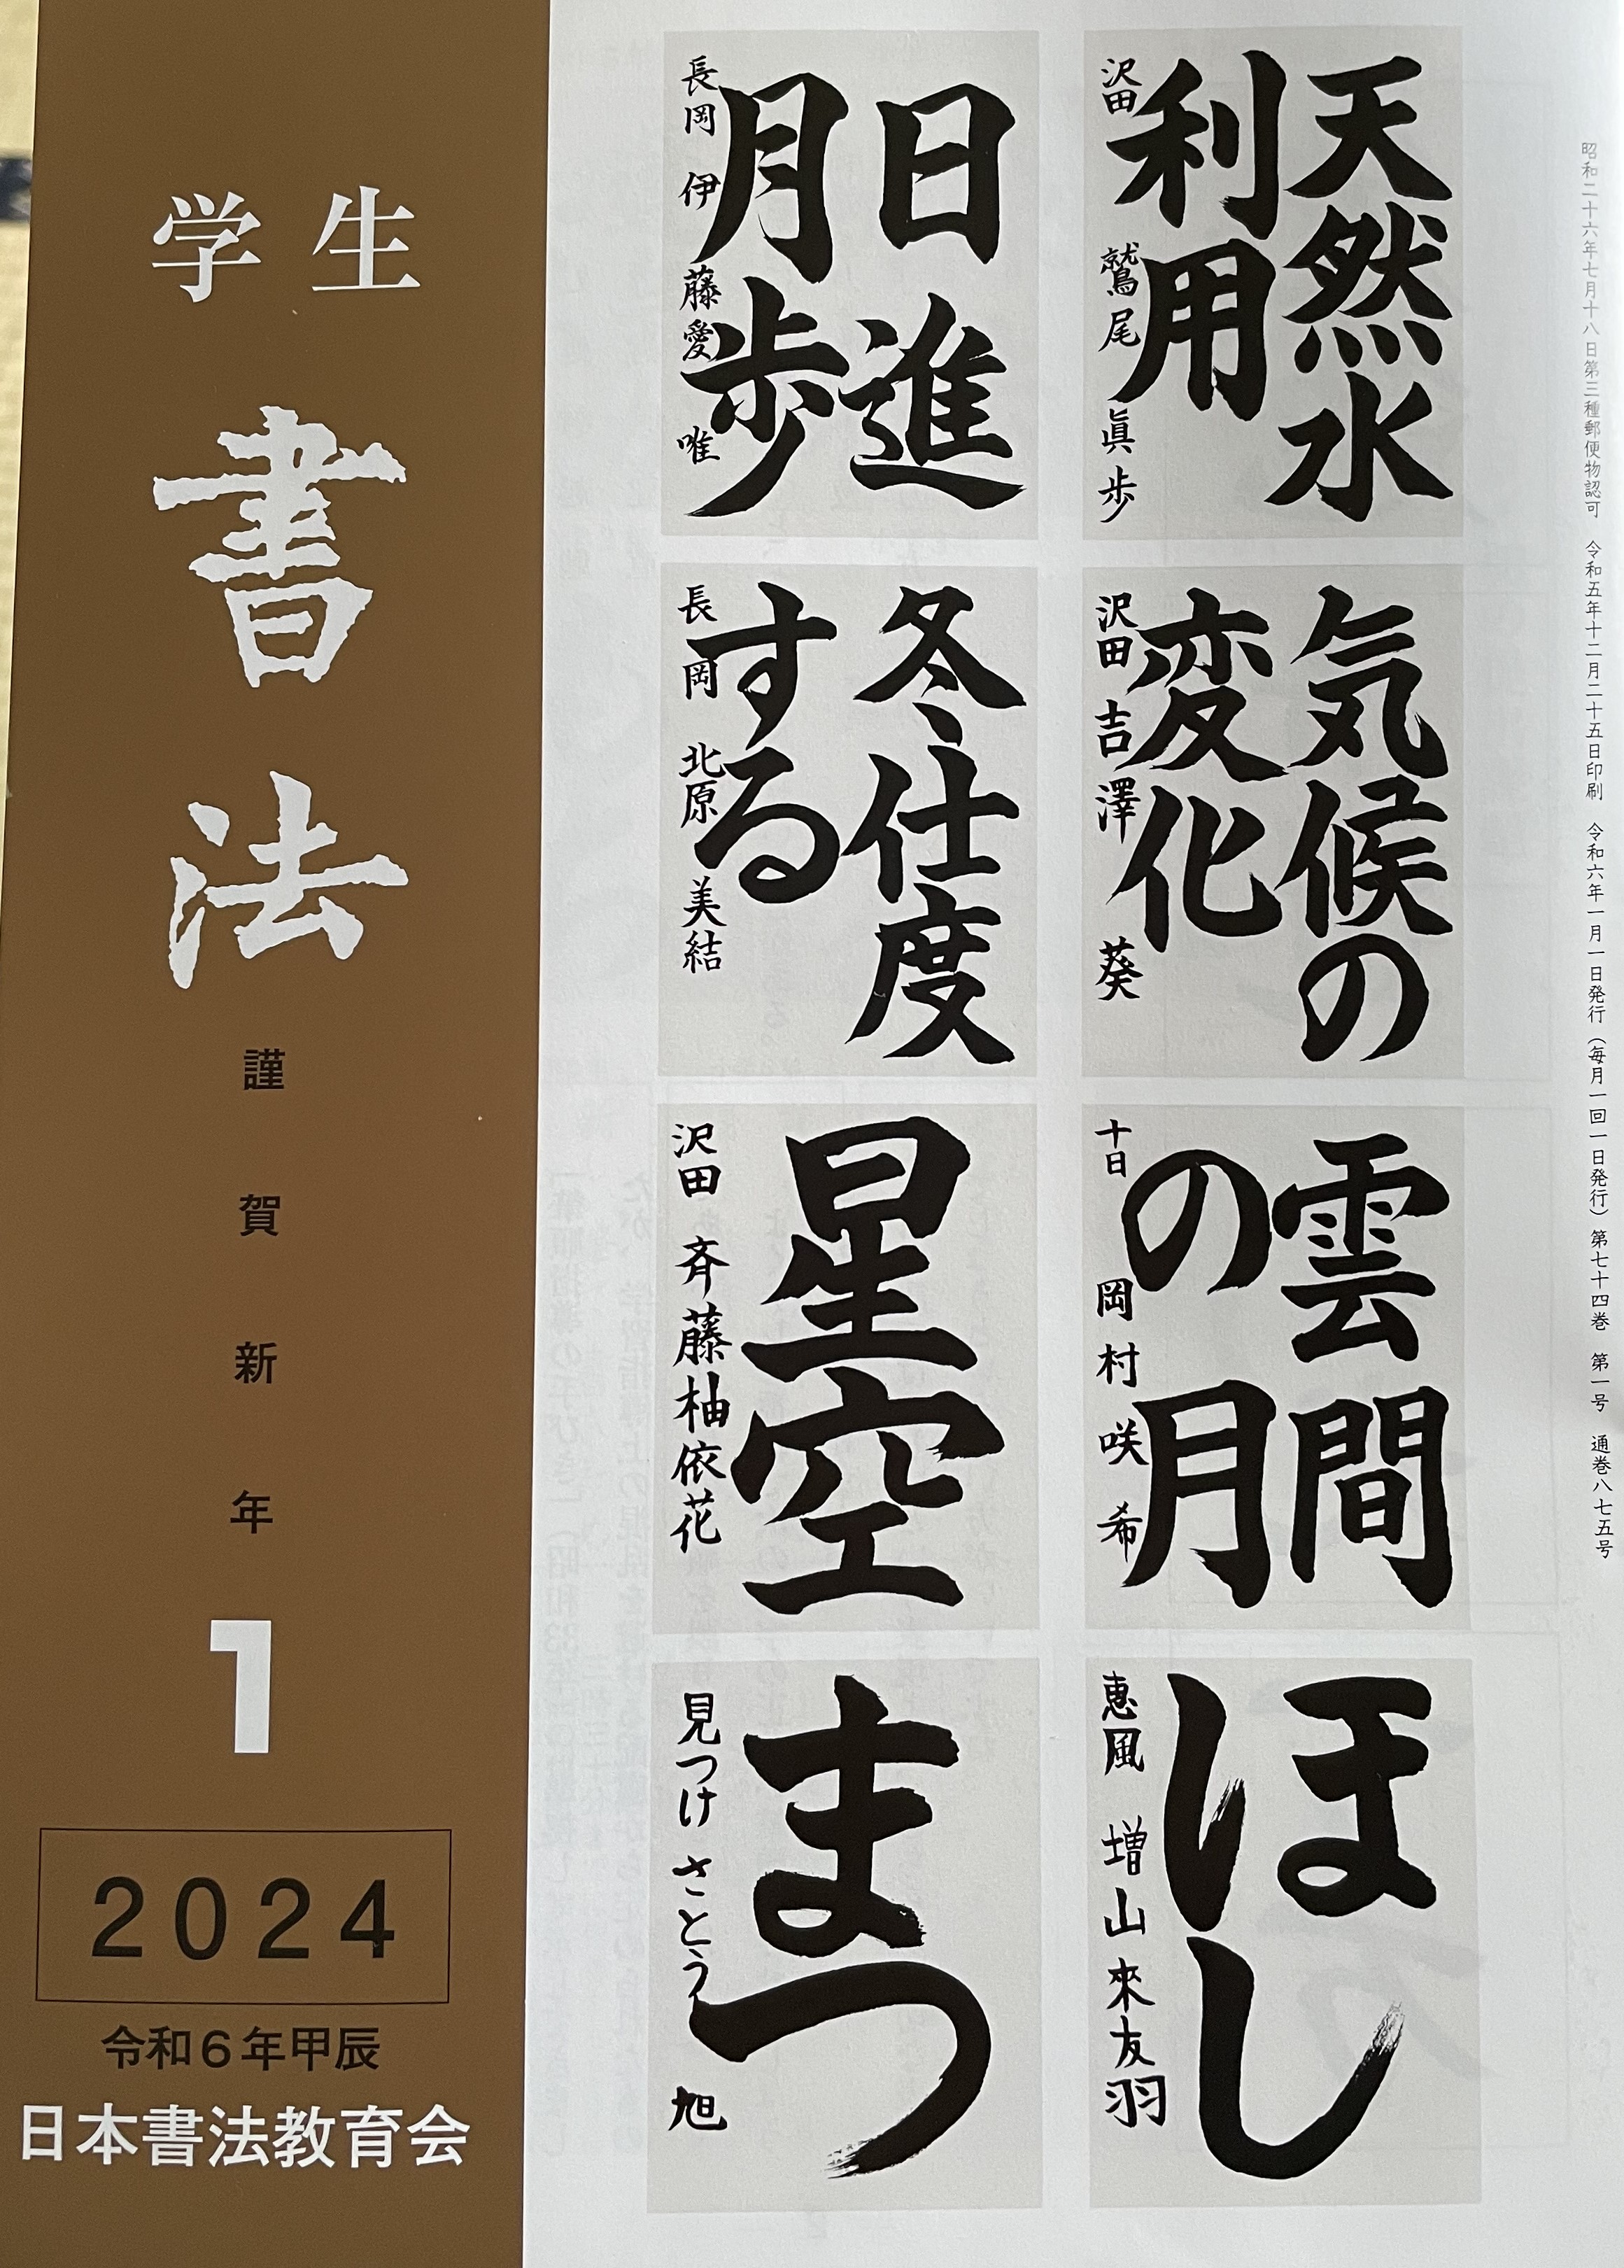 昭和二十六年七月十八日第三種郵便物認可　令和五年十二月二十五日印刷　令和六年一月一日発行（毎月一回一日発行）第七十四巻　第一号　通巻八七五号
天然水
利用
沢田　鷲尾　眞歩
気候の
変化
沢田　吉澤　葵
雲間
の月
十日　岡村　咲希
ほ
し
恵風　増山來友羽
日進
月歩
長岡　伊藤愛唯
冬仕度
する
長岡　北原　美結
星空
沢田　斉藤柚依花
まつ
見つけ　さとう　旭
学生
書法
謹賀新年
1
2024
令和6年甲辰
日本書法教育会